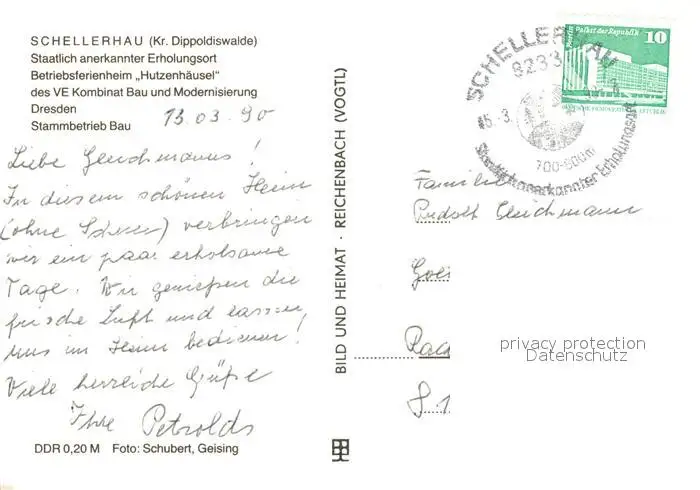 SCHELLERHAU (Kr. Dippoldiswalde)
Staatlich anerkannter Erholungsort
Betriebsferienheim „Hutzenhäusel"
des VE Kombinat Bau und Modernisierung
Dresden
Stammbetrieb Bau
13.03.90
Liebe Gleichmanns!
In diesem schönen Heim
(ohne Schnee) verbringen
wir ein paar erholsame
Tage. Wir genießen die
frische Luft und lassen
uns im Heim bedienen!
Viele herzliche Grüße
Ihre Petzolds
DDR 0,20 M Foto: Schubert, Geising
BILD UND HEIMAT · REICHENBACH (VOGTL)
SCHELLERHAU
8233
700-800m
Staatlich anerkannter Erholungsort
Berlin Palast der Republik
10
DEUTSCHE DEMOKRATISCHE REPUBLIK
Familie
Rudolf Gleichmann
privacy protection
Datenschutz